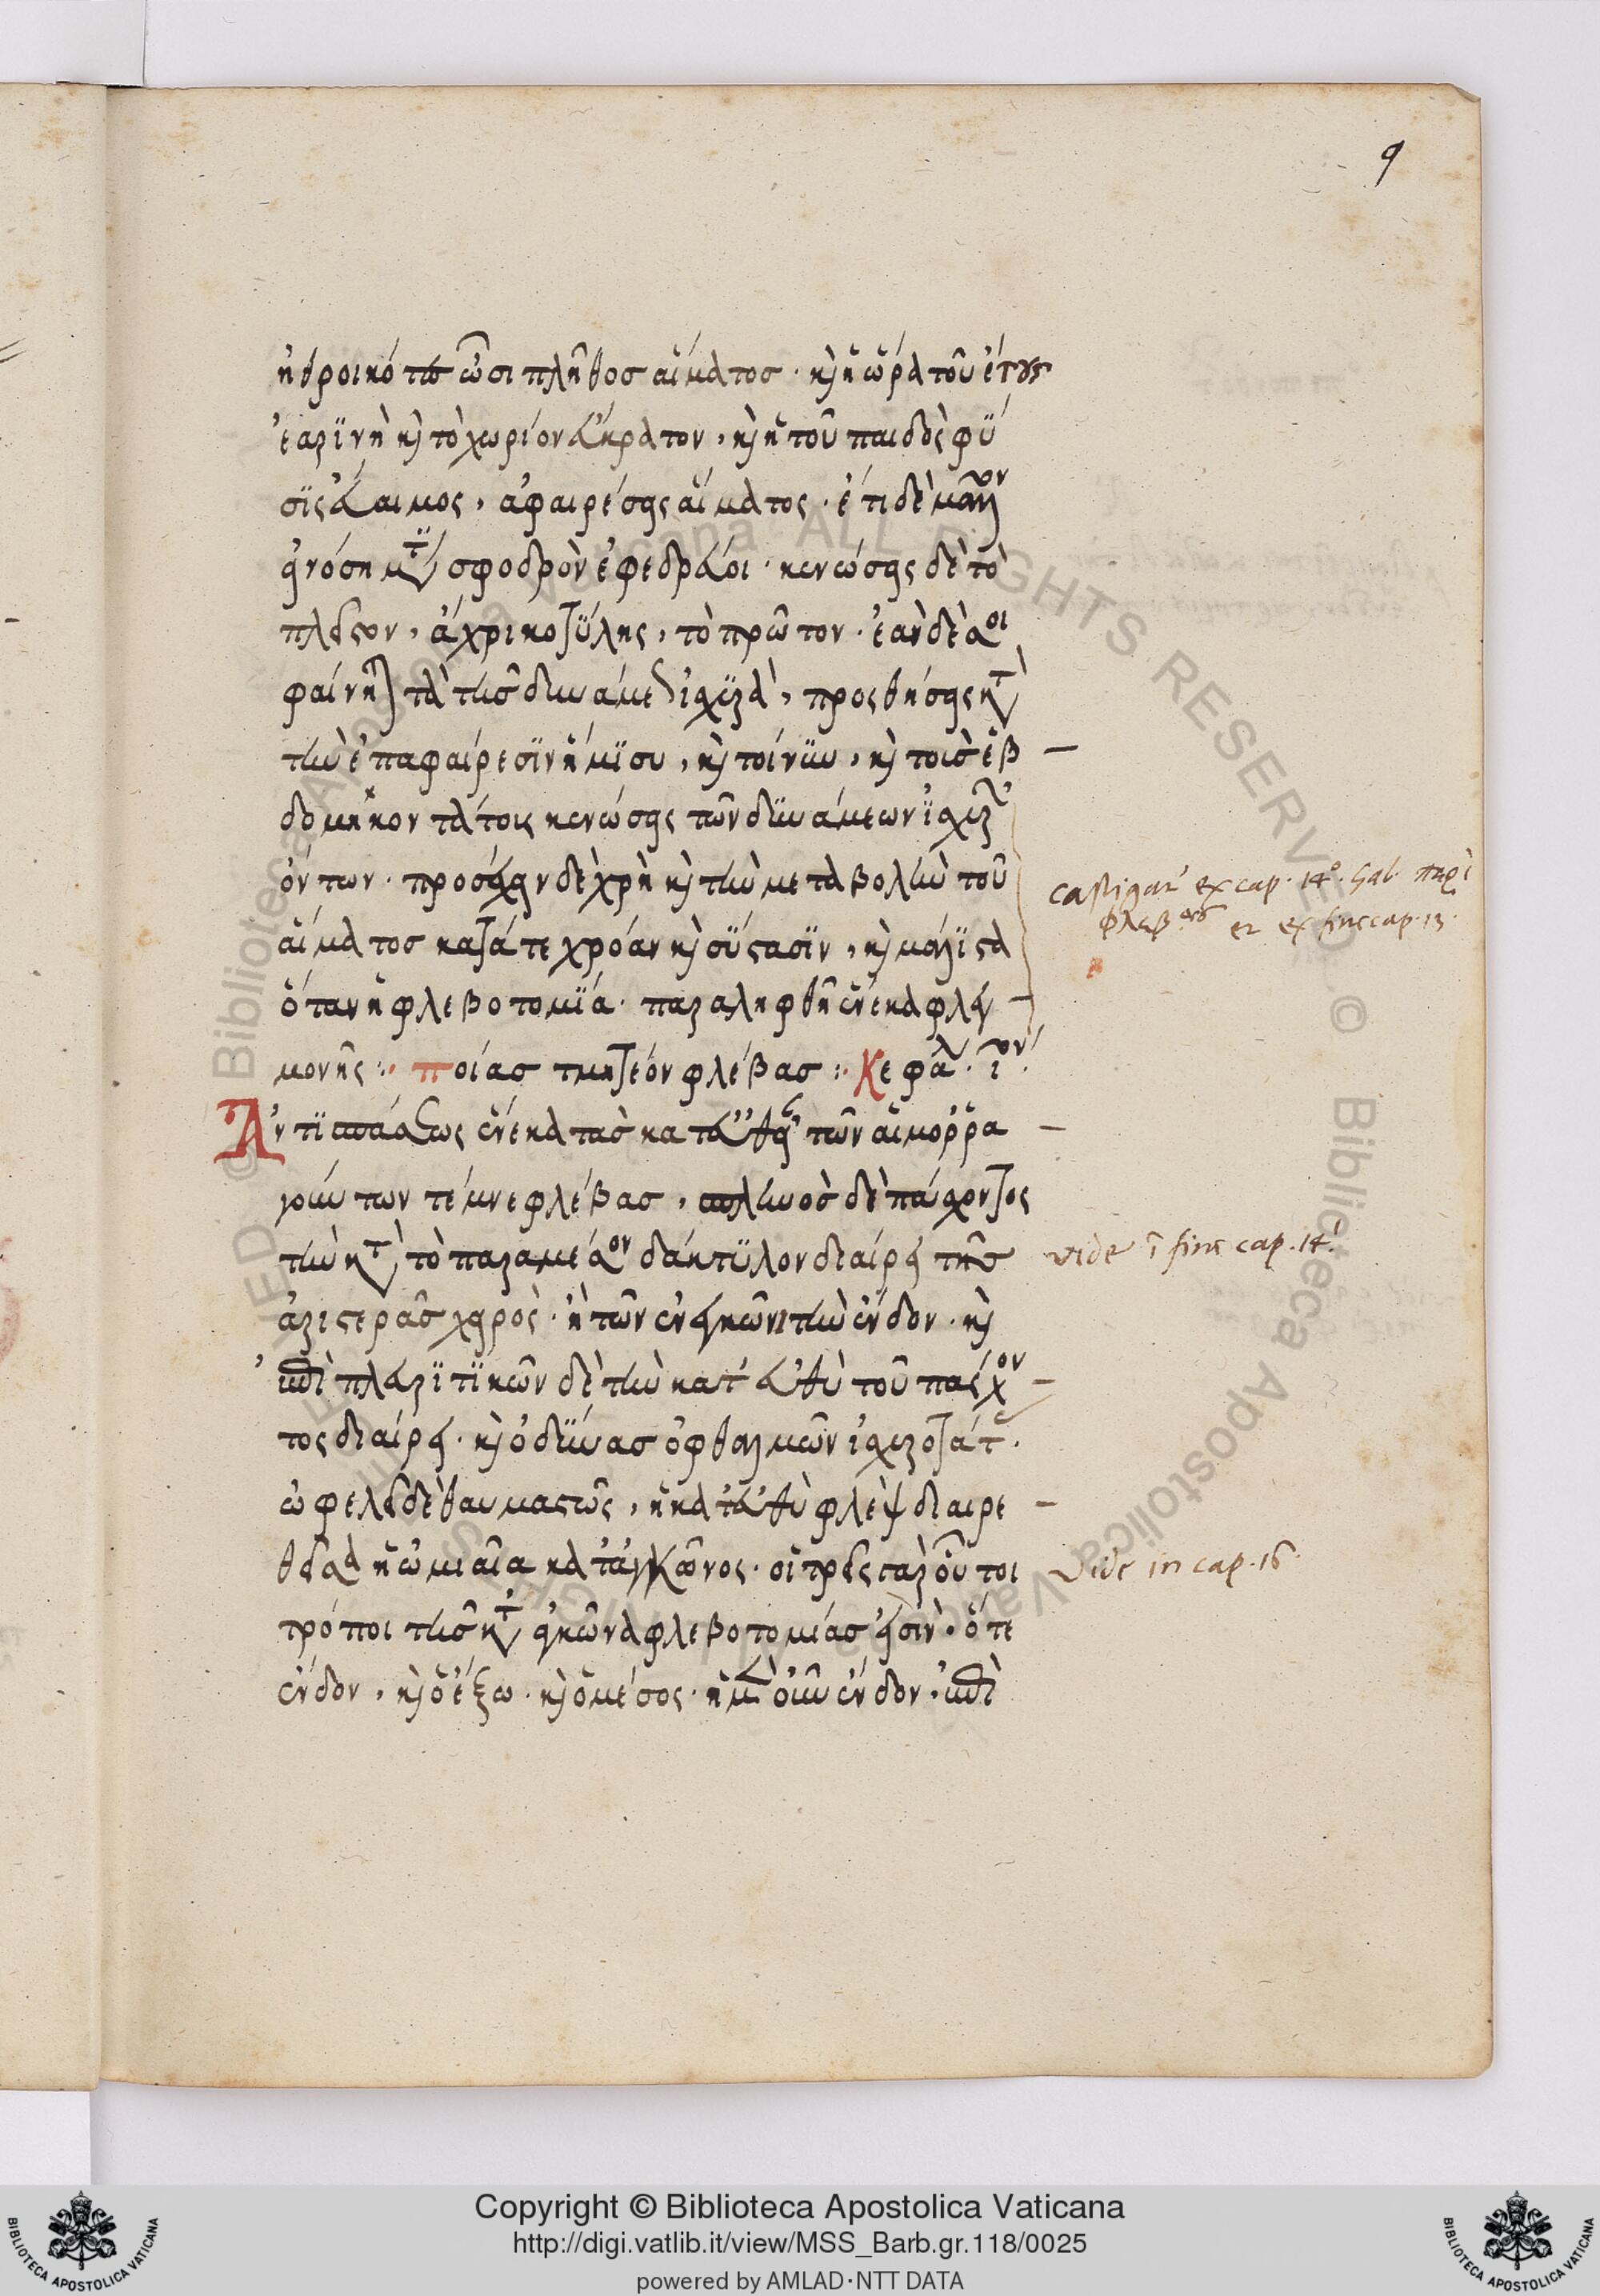 9
ἠθροικότως ὦσι πλῆθος αἵματος · καὶ ἡ ὥρα τοῦ ἔτους
ἐαρϊνὴ καὶ τὸ χωρίον εὔκρατον, καὶ ἡ τοῦ παιδὸς φύ
σϊς εὔαιμος, ἀφαιρήσεις αἵματος · ἔτι δὲ μᾶλλον
εἰ νόσημα σφοδρὸν ἐφεδρεύοι · κενώσεις δὲ τὸ
πλεῖστον, ἄχρι κοτύλης, τὸ πρῶτον · ἐὰν δέ σοι
φαίνηται τὰ τῆς δυνάμεως ἰσχυρὰ, προσθήσεις κατὰ
τὴν ἐπαφαίρεσϊν ἥμϊσυ, καὶ τοίνυν, καὶ τοῖς ἑβ
δομηκοντάτοις κενώσεις τῶν δυνάμεων ἰσχυρῶν
ὄντων · προσέχειν δὲ χρὴ καὶ τὴν μεταβολὴν τοῦ
αἵματος κατά τε χρόαν καὶ σύστασϊν, καὶ μάλϊστα
ὅταν ἡ φλεβοτομΐα · παραληφθῇ ἕνεκα φλεγ
μονῆς : ποίας τμητέον φλέβας : Κεφάλ. ι ον.
Ἀντϊσπάσεως ἕνεκα τὰς κατευθὺ τῶν αἱμορρα
γούντων τέμνε φλέβας, σπληνὸς δὲ πάσχοντος
τὴν κατὰ τὸ παράμεσον δάκτυλον διαίρει τῆς
ἀριστερᾶς χειρὸς · ἢ τῶν ἐν ἀγκῶνι τὴν ἔνδον · καὶ
ἐπὶ πλευρϊτϊκῶν δὲ τὴν κατ' εὐθὺ τοῦ πάσχον
τος διαίρει · καὶ ὀδύνας ὀφθαλμῶν ἰσχυροτάτας ·
ὠφελεῖ δὲ θαυμαστῶς, ἡ κατ' εὐθὺ φλὲψ διαιρε
θεῖσα ἡ ὠμιαία κατ' ἀγκῶνος · οἱ τρεῖς γὰρ οὗτοι
τρόποι τῆς κατ' ἀγκῶνα φλεβοτομίας εἰσὶν · ὅ τε
ἔνδον, καὶ ὁ ἔξω · καὶ ὁ μέσος · ἡ μὲν οὖν ἔνδον · ἐπὶ
castigatur ex cap. 14º. Gal. περὶ
φλεβ. et ex fine cap. 13.
vide ĩ fine cap. 14.
vide in cap. 16.
Copyright © Biblioteca Apostolica Vaticana
http://digi.vatlib.it/view/MSS_Barb.gr.118/0025
powered by AMLAD·NTT DATA
BIBLIOTECA APOSTOLICA VATICANA
BIBLIOTECA APOSTOLICA VATICANA